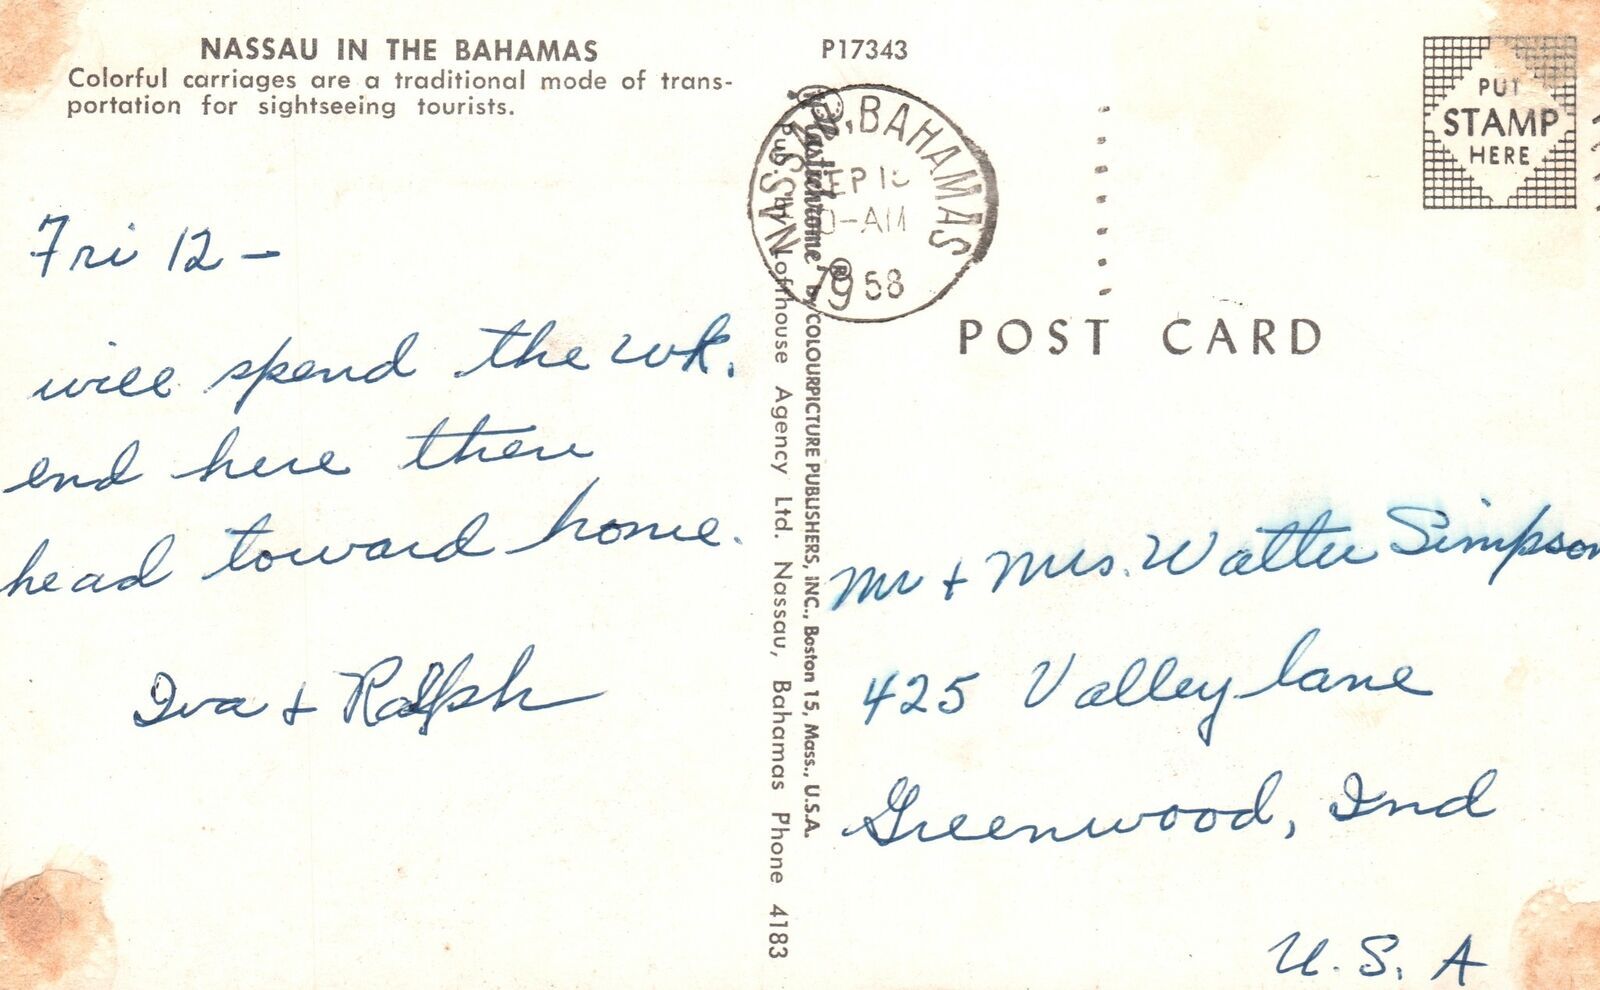 NASSAU IN THE BAHAMAS
Colorful carriages are a traditional mode of trans-
portation for sightseeing tourists.
P17343
NASSAU, BAHAMAS
SEP
-AM
1958
PUT
STAMP
HERE
POST CARD
"Plastichrome"® by COLOURPICTURE PUBLISHERS, INC., Boston 15, Mass., U.S.A.
Pub. by Agency Ltd. Nassau, Bahamas Phone 4183
Fri 12 -
will spend the wk.
end here then
head toward home.
Iva + Ralph
Mr + Mrs. Walter Simpson
425 Valley Lane
Greenwood, Ind
U.S.A